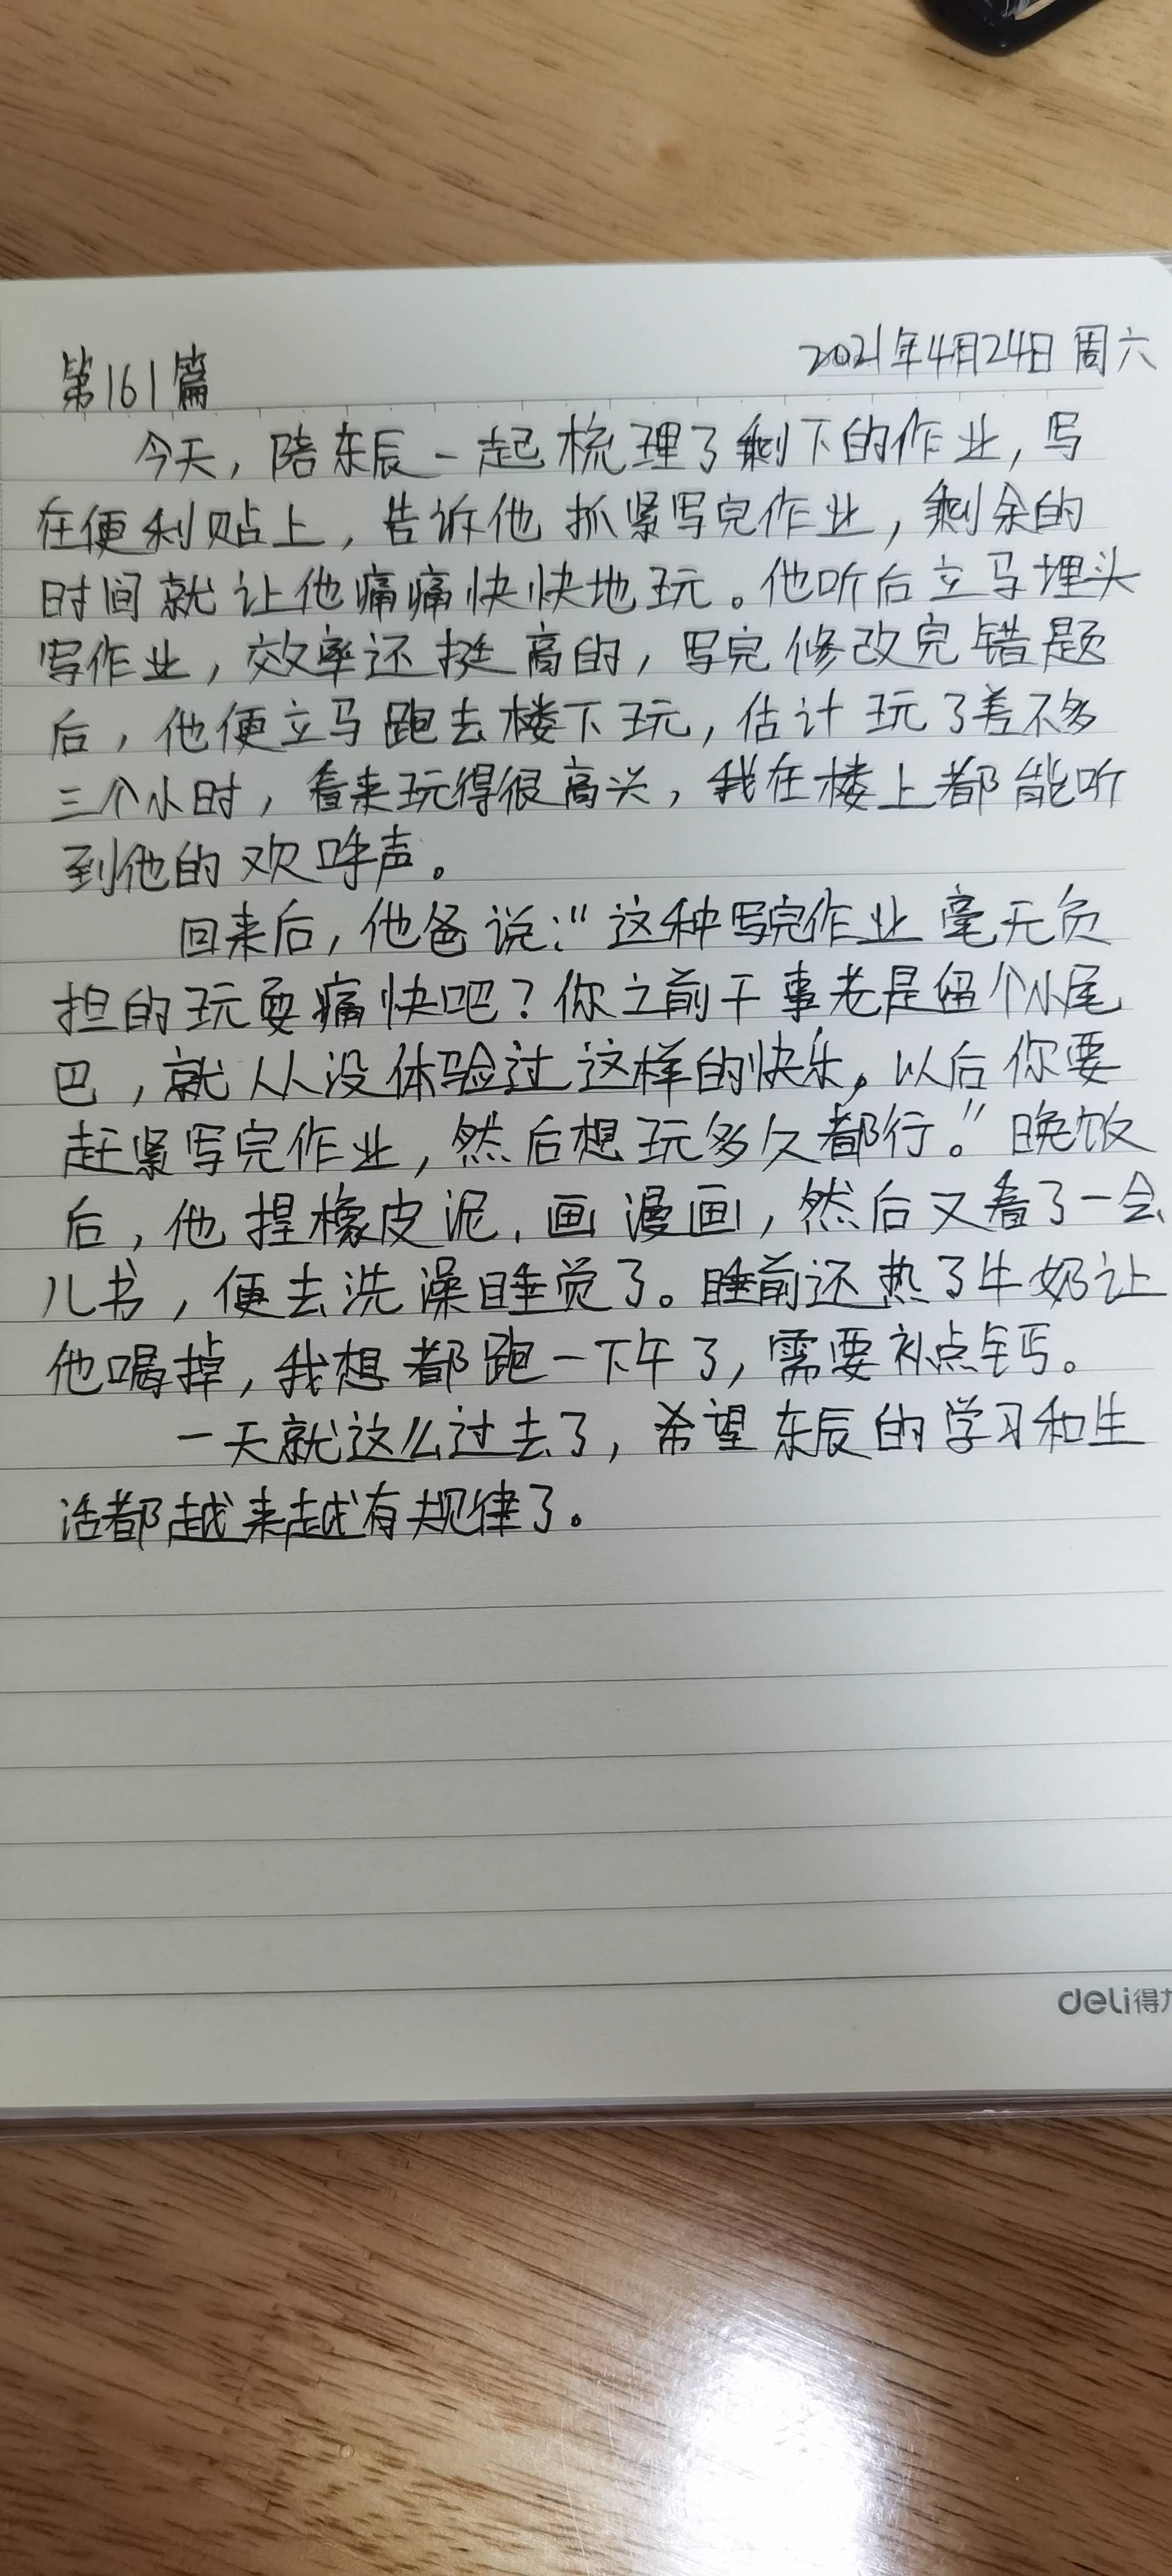 第161篇
2021年4月24日 周六
今天，陪东辰一起梳理了剩下的作业，写
在便利贴上，告诉他抓紧写完作业，剩余的
时间就让他痛痛快快地玩。他听后立马埋头
写作业，效率还挺高的，写完修改完错题
后，他便立马跑去楼下玩，估计玩了差不多
三个小时，看来玩得很高兴，我在楼上都能听
到他的欢呼声。
回来后，他爸说：“这种写完作业毫无负
担的玩耍痛快吧？你之前干事老是留个小尾
巴，就从没体验过这样的快乐，以后你要
赶紧写完作业，然后想玩多久都行。”晚饭
后，他捏橡皮泥，画漫画，然后又看了一会
儿书，便去洗澡睡觉了。睡前还热了牛奶让
他喝掉，我想都跑一下午了，需要补点钙。
一天就这么过去了，希望东辰的学习和生
活都越来越有规律了。
deli得力